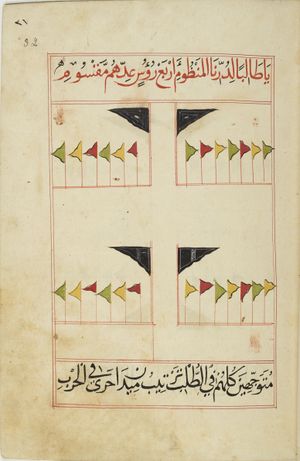 ٢١
32
يا طالبا لدرنا المنظوم اربع رؤس عدهم مقسوم
متوجهين كلهم في الطلب ترتيب ميدان اخرى في الحرب